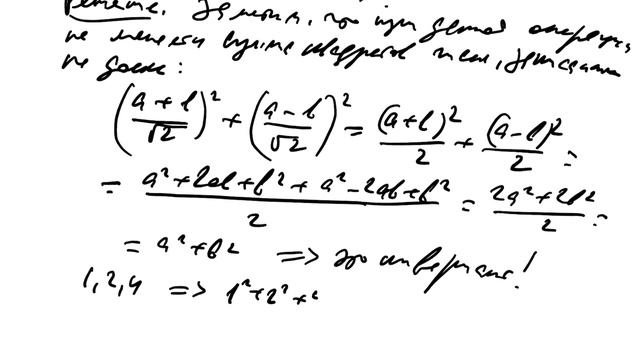 Решение. Заметим, что при данной операции
не меняется сумма квадратов чисел, записанных
на доске:
(a + b / √2)² + (a - b / √2)² = (a+b)² / 2 + (a-b)² / 2 =
= a² + 2ab + b² + a² - 2ab + b² / 2 = 2a² + 2b² / 2 =
= a² + b² => это инвариант!
1, 2, 4 => 1² + 2² +